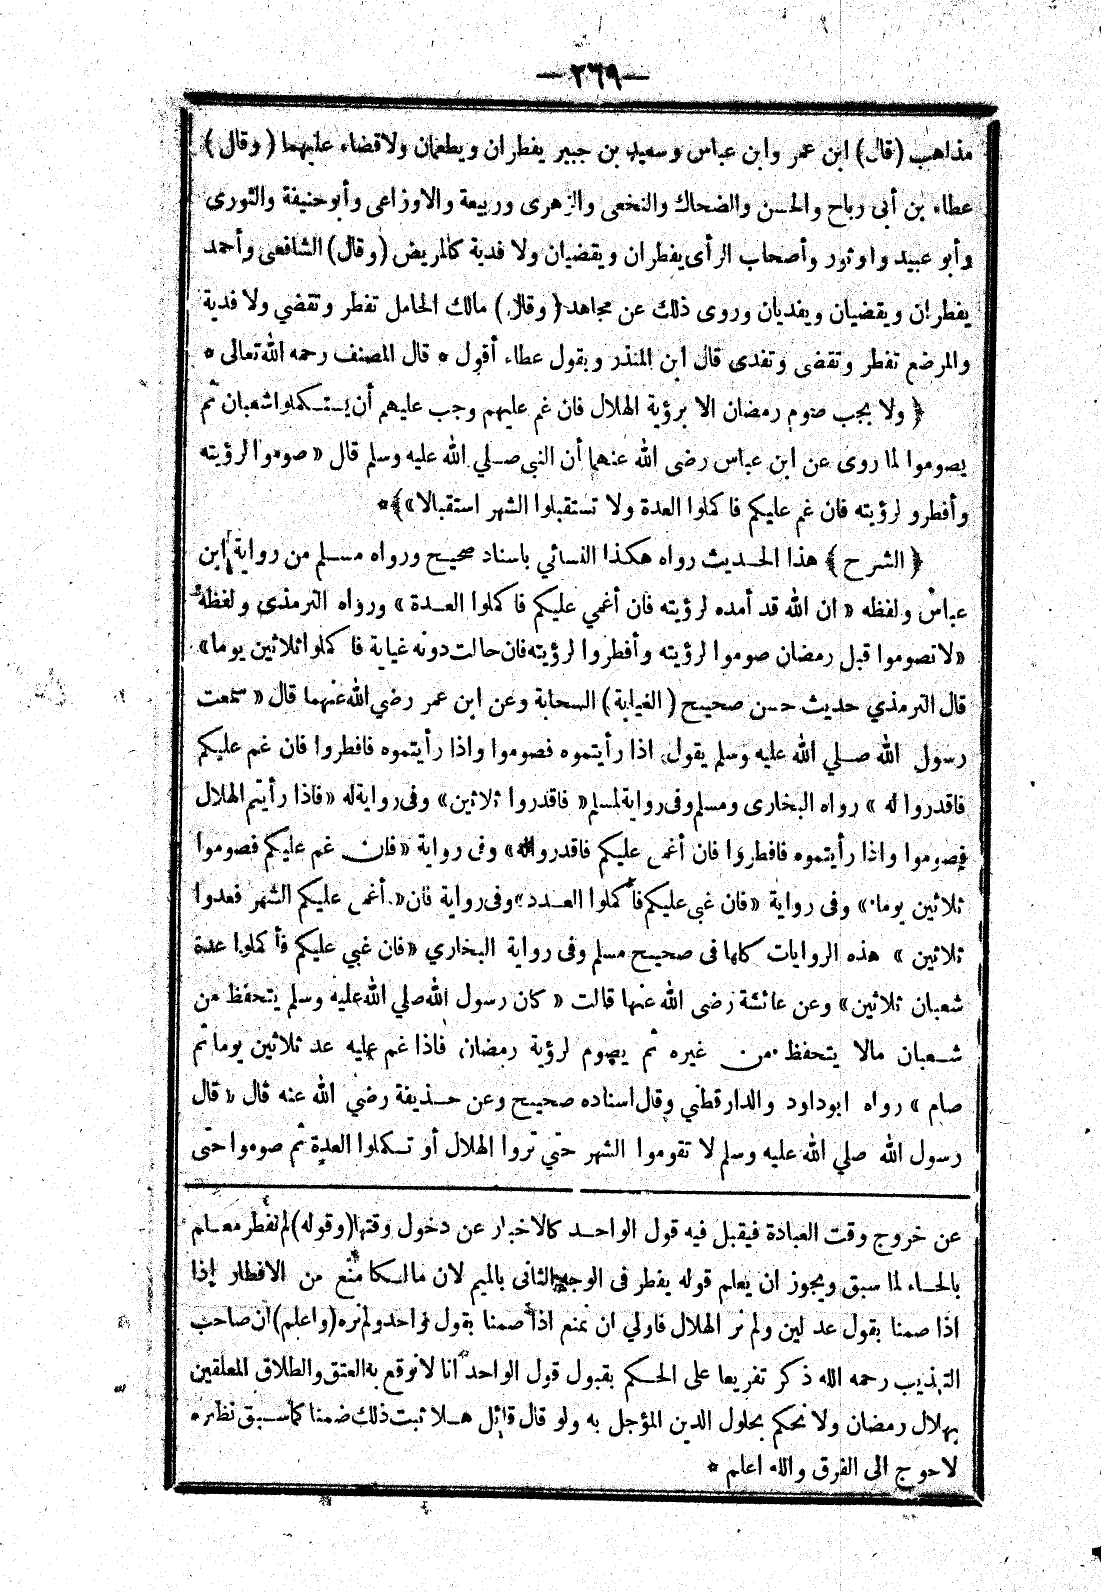 —٢٦٩—
مذاهب (قال) ابن عمر وابن عباس وسعيد بن جبير يفطران ويطعمان ولا قضاء عليهما (وقال)
عطاء بن أبى رباح والحسن والضحاك والنخعى والزهرى وربيعة والاوزاعى وأبو حنيفة والثورى
وأبو عبيد وابو ثور وأصحاب الرأى يفطران ويقضيان ولا فدية كالمريض (وقال) الشافعى وأحمد
يفطران ويقضيان ويفديان وروى ذلك عن مجاهد (وقال) مالك الحامل تفطر وتقضي ولا فدية
والمرضع تفطر وتقضى وتفدى قال ابن المنذر وبقول عطاء أقول * قال المصنف رحمه الله تعالى *
﴿ ولا يجب صوم رمضان الا برؤية الهلال فان غم عليهم وجب عليهم أن يستكملوا شعبان ثم
يصوموا لما روى عن ابن عباس رضى الله عنهما أن النبى صلي الله عليه وسلم قال « صوموا لرؤيته
وأفطرو لرؤيته فان غم عليكم فا كملوا العدة ولا تستقبلوا الشهر استقبالا »﴾ *
﴿ الشرح ﴾ هذا الحديث رواه هكذا النسائي باسناد صحيح ورواه مسلم من رواية ابن
عباس ولفظه « ان الله قد أمده لرؤيته فان أغمي عليكم فا كملوا العدة » ورواه الترمذي ولفظه
« لا تصوموا قبل رمضان صوموا لرؤيته وأفطروا لرؤيته فان حالت دونه غياية فا كملوا ثلاثين يوما »
قال الترمذي حديث حسن صحيح (الغياية) السحابة وعن ابن عمر رضي الله عنهما قال « سمعت
رسول الله صلي الله عليه وسلم يقول اذا رأيتموه فصوموا واذا رأيتموه فافطروا فان غم عليكم
فاقدروا له » رواه البخارى ومسلم وفى رواية لمسلم « فاقدروا ثلاثين » وفى رواية له « فاذا رأيتم الهلال
فصوموا واذا رأيتموه فافطروا فان أغمى عليكم فاقدروا له » وفى رواية « فان غم عليكم فصوموا
ثلاثين يوما » وفى رواية « فان غبي عليكم فأ كملوا العدد » وفى رواية فان « أغمى عليكم الشهر فعدوا
ثلاثين » هذه الروايات كلها فى صحيح مسلم وفى رواية البخاري « فان غبي عليكم فأ كملوا عدة
شعبان ثلاثين » وعن عائشة رضى الله عنها قالت « كان رسول الله صلي الله عليه وسلم يتحفظ من
شعبان مالا يتحفظ من غيره ثم يصوم لرؤية رمضان فاذا غم عليه عد ثلاثين يوما ثم
صام » رواه ابو داود والدارقطني وقال اسناده صحيح وعن حذيفة رضي الله عنه قال « قال
رسول الله صلي الله عليه وسلم لا تقوموا الشهر حتي تروا الهلال أو تكملوا العدة ثم صوموا حتى
عن خروج وقت العبادة فيقبل فيه قول الواحد كالاخبار عن دخول وقتها (وقوله) لم نفطر معلم
بالحاء لما سبق ويجوز ان يعلم قوله يفطر فى الوجه الثانى بالميم لان مالكا منع من الافطار إذا
اذا صمنا بقول عدلين ولم نر الهلال فاولي ان نمنع اذا صمنا بقول واحد ولم نره (واعلم) ان صاحب
التهذيب رحمه الله ذكر تفريعا على الحكم بقبول قول الواحد انا لا نوقع به العتق والطلاق المعلقين
بهلال رمضان ولا نحكم بحلول الدين المؤجل به ولو قال قائل هلا ثبت ذلك ضمنا كما سبق نظيره
لاحوج الى الفرق والله اعلم *